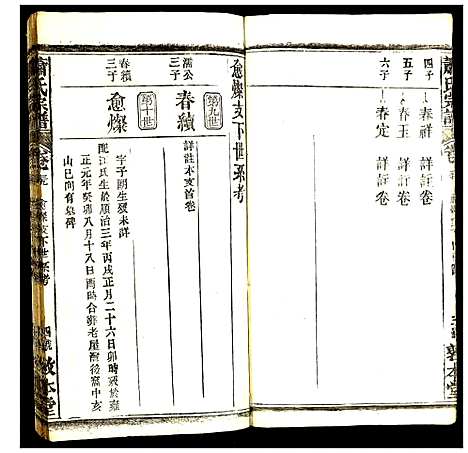 蕭氏宗譜
四子
春祥 詳註卷
五子
春玉 詳註卷
六子
春定 詳註卷
敦本堂
愈燦支下世系考
第九世
濡公三子
春績
詳註本支首卷
第十世
春績三子
愈燦
字子朗生歿未詳
配江氏生於順治三年丙戌正月二十六日卯時歿於雍
正元年癸卯八月十八日酉時合葬老屋灣後窩中亥
山巳向有墓碑
蕭氏宗譜
愈燦支下世系考
敦本堂